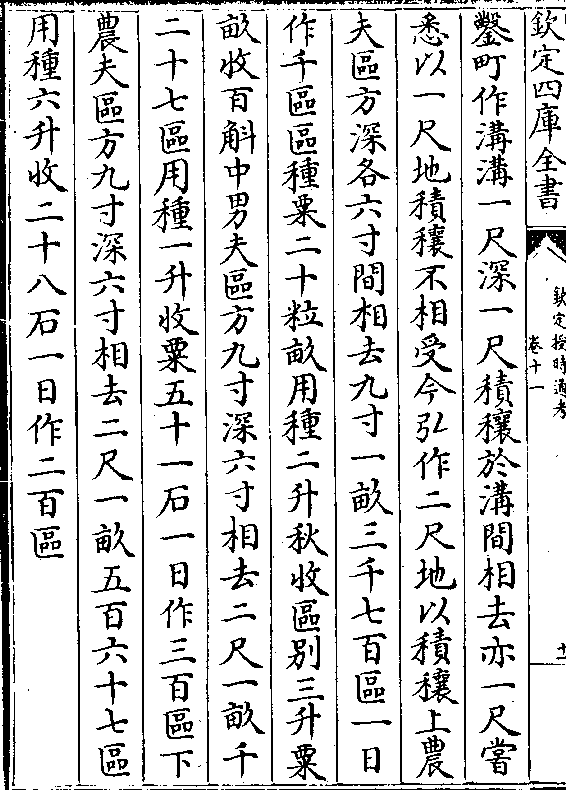 欽定四庫全書
欽定授時通考
卷十一
十
鑿町作溝溝一尺深一尺積穰於溝間相去亦一尺嘗
悉以一尺地積穰不相受今弘作二尺地以積穰上農
夫區方深各六寸間相去九寸一畝三千七百區一日
作千區區種粟二十粒畝用種二升秋收區别三升粟
畝收百斛中男夫區方九寸深六寸相去二尺一畝千
二十七區用種一升收粟五十一石一日作三百區下
農夫區方九寸深六寸相去二尺一畝五百六十七區
用種六升收二十八石一日作二百區